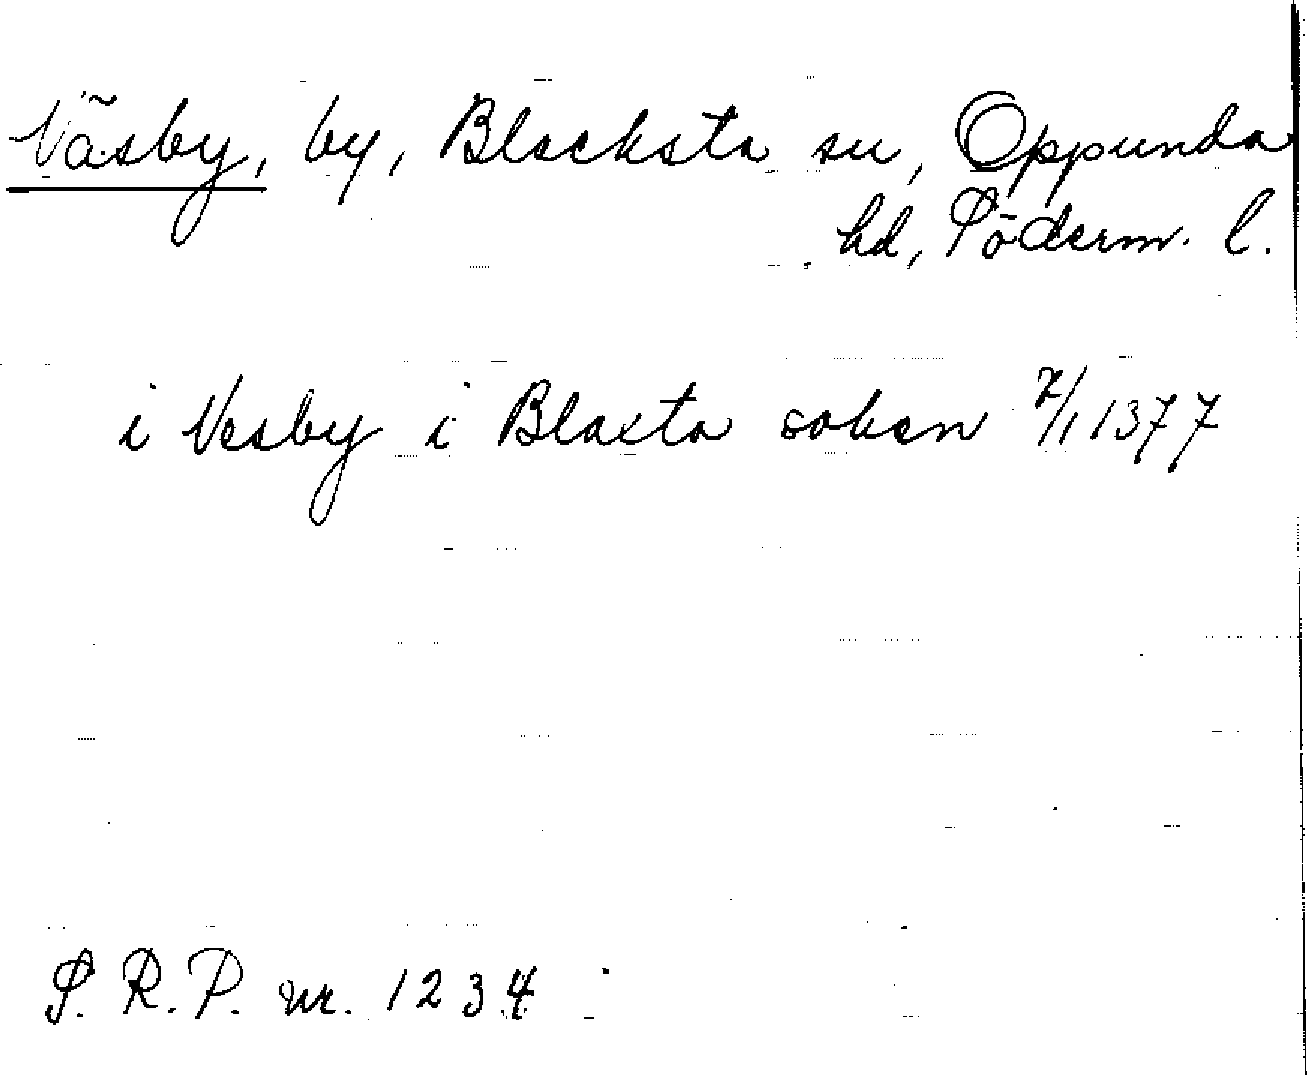 Väsby, by, Blacksta sn, Oppunda
hd, Söderm. l.
i Vesby i Blaxta soken 7/1 1377
S. R. P. nr. 1234